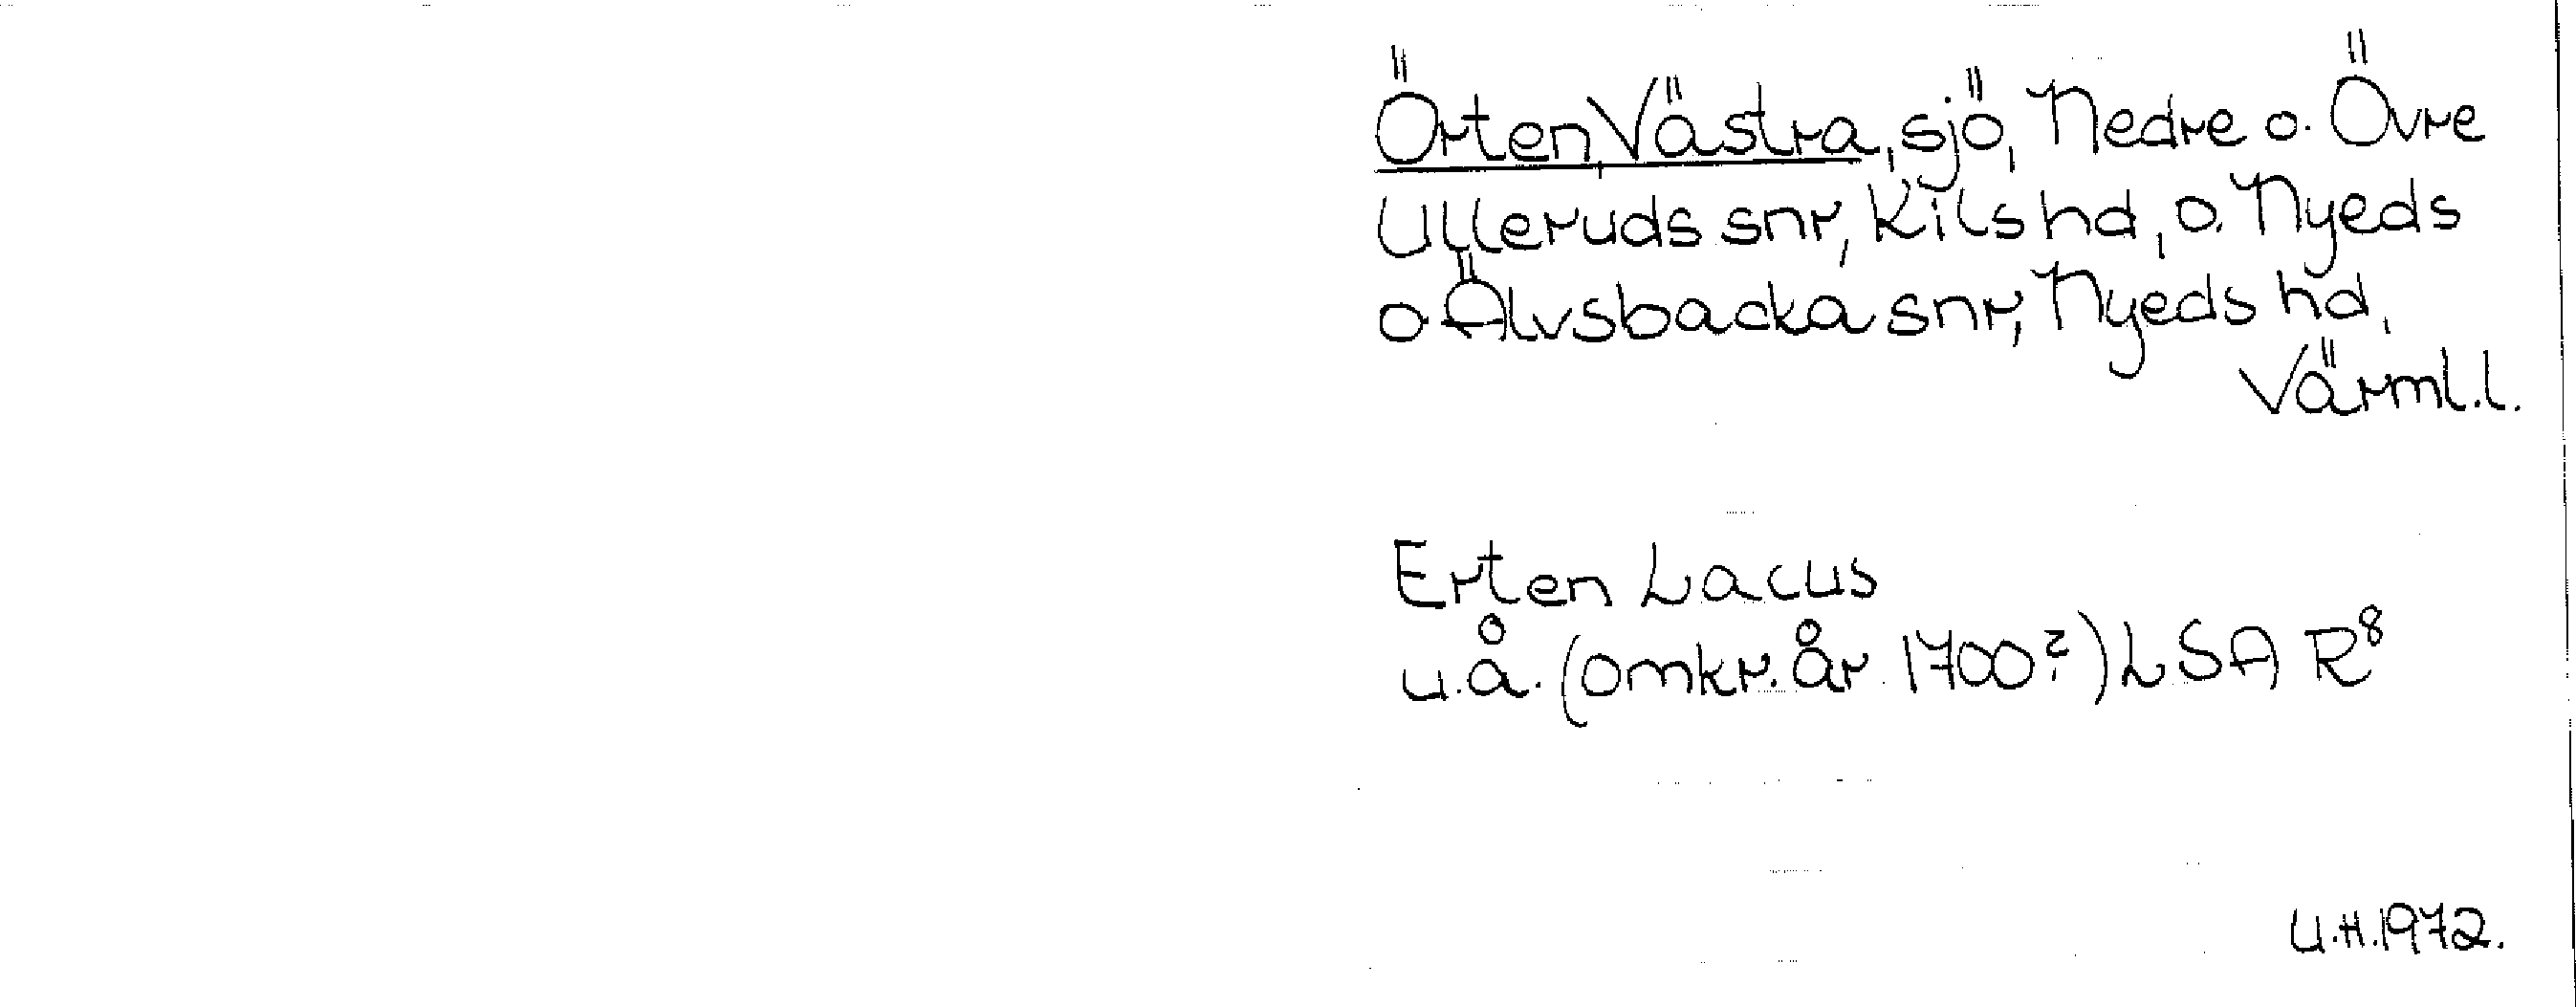 Örten, Västra, sjö, Nedre o. Övre
Ulleruds snr, Kils hd, o. Nyeds
o Älvsbacka snr, Nyeds hd,
Värml.l.
Erten Lacus
u.å. (omkr. år 1700?) LSA R⁸
U.H.1972.